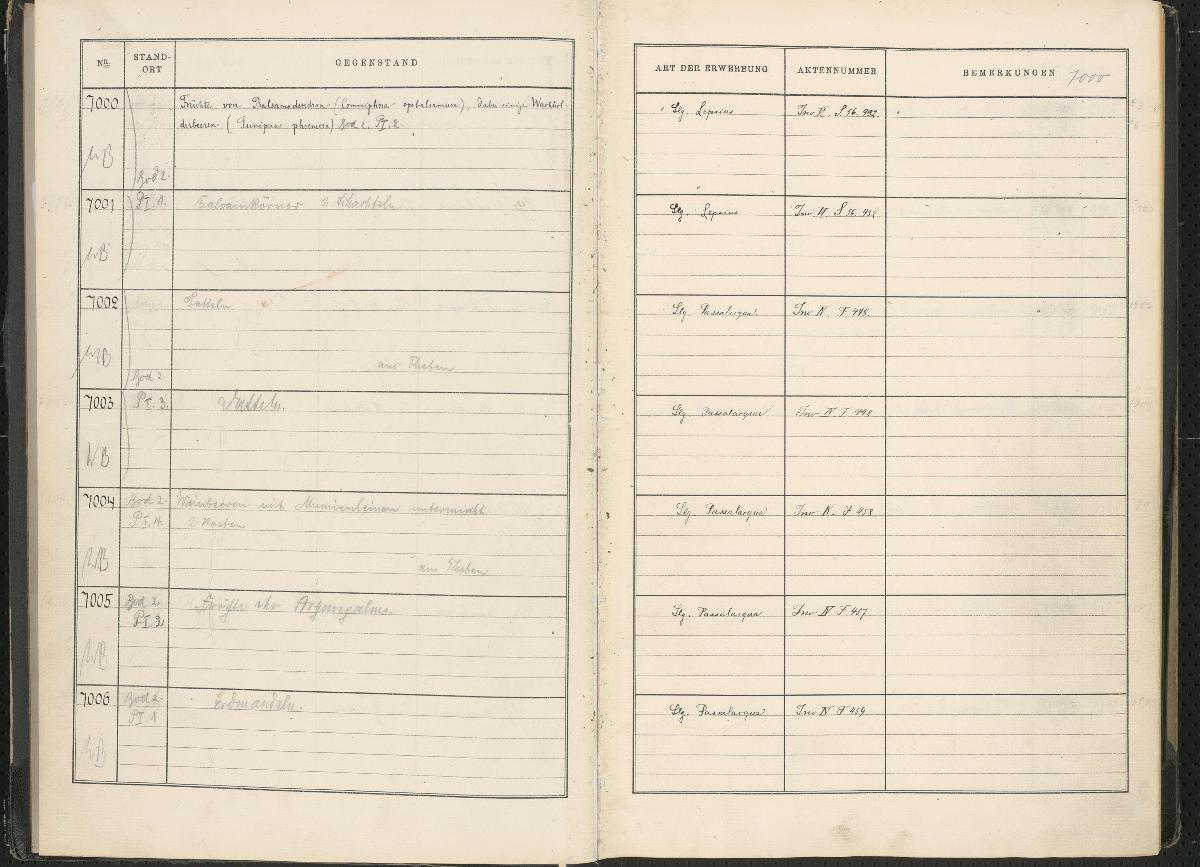 Nr.
STAND-
ORT
GEGENSTAND
7000
Früchte von Balsamodendron (Commiphora opobalsamum), dabei einige Wachhol-
derbeeren (Juniperus phoenicea) Bod 2. PI. 2.
WB
Bod 2.
7001
PI. 1.
Balsamkörner 3 Schachteln
WB
7002
Datteln
WB
aus Theben
Bod 2
7003
PI. 3.
Datteln.
WB
7004
Bod 2.
Weinbeeren mit Mumienleinen untermischt
PI. 4.
aus Theben
WB
7005
Bod 2.
Früchte der Argunpalme.
PI. 3.
WB
7006
Bod 2.
Erdmandeln.
PI. 1
WB
ART DER ERWERBUNG
AKTENNUMMER
BEMERKUNGEN
7000
Slg. Lepsius
Inv IV. S 56. 932
Slg. Lepsius
Inv IV. S 56. 932
Slg. Passalacqua
Inv IV. F 448.
Slg. Passalacqua
Inv IV. F 448
Slg. Passalacqua
Inv IV. F 458.
Slg. Passalacqua
Inv IV F 457.
Slg. Passalacqua
Inv IV F 459